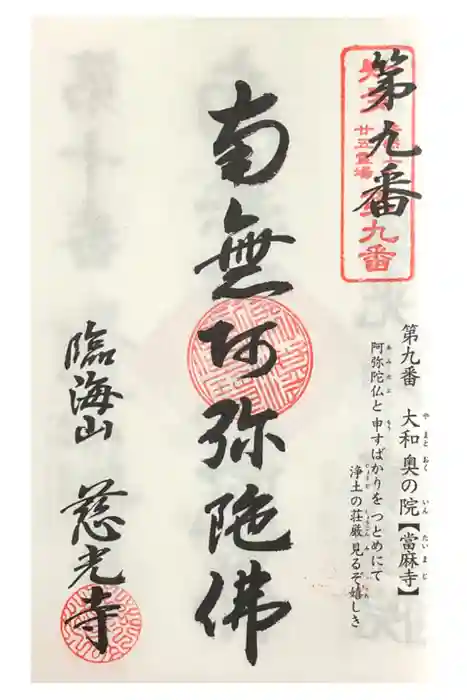 第九番
廿五霊場
第九番
第九番　大和奥の院【當麻寺】
やまと おく いん たいまじ
阿弥陀仏と申すばかりをつとめにて
浄土の荘厳見るぞ嬉しき
南無阿弥陀佛
臨海山　慈光寺